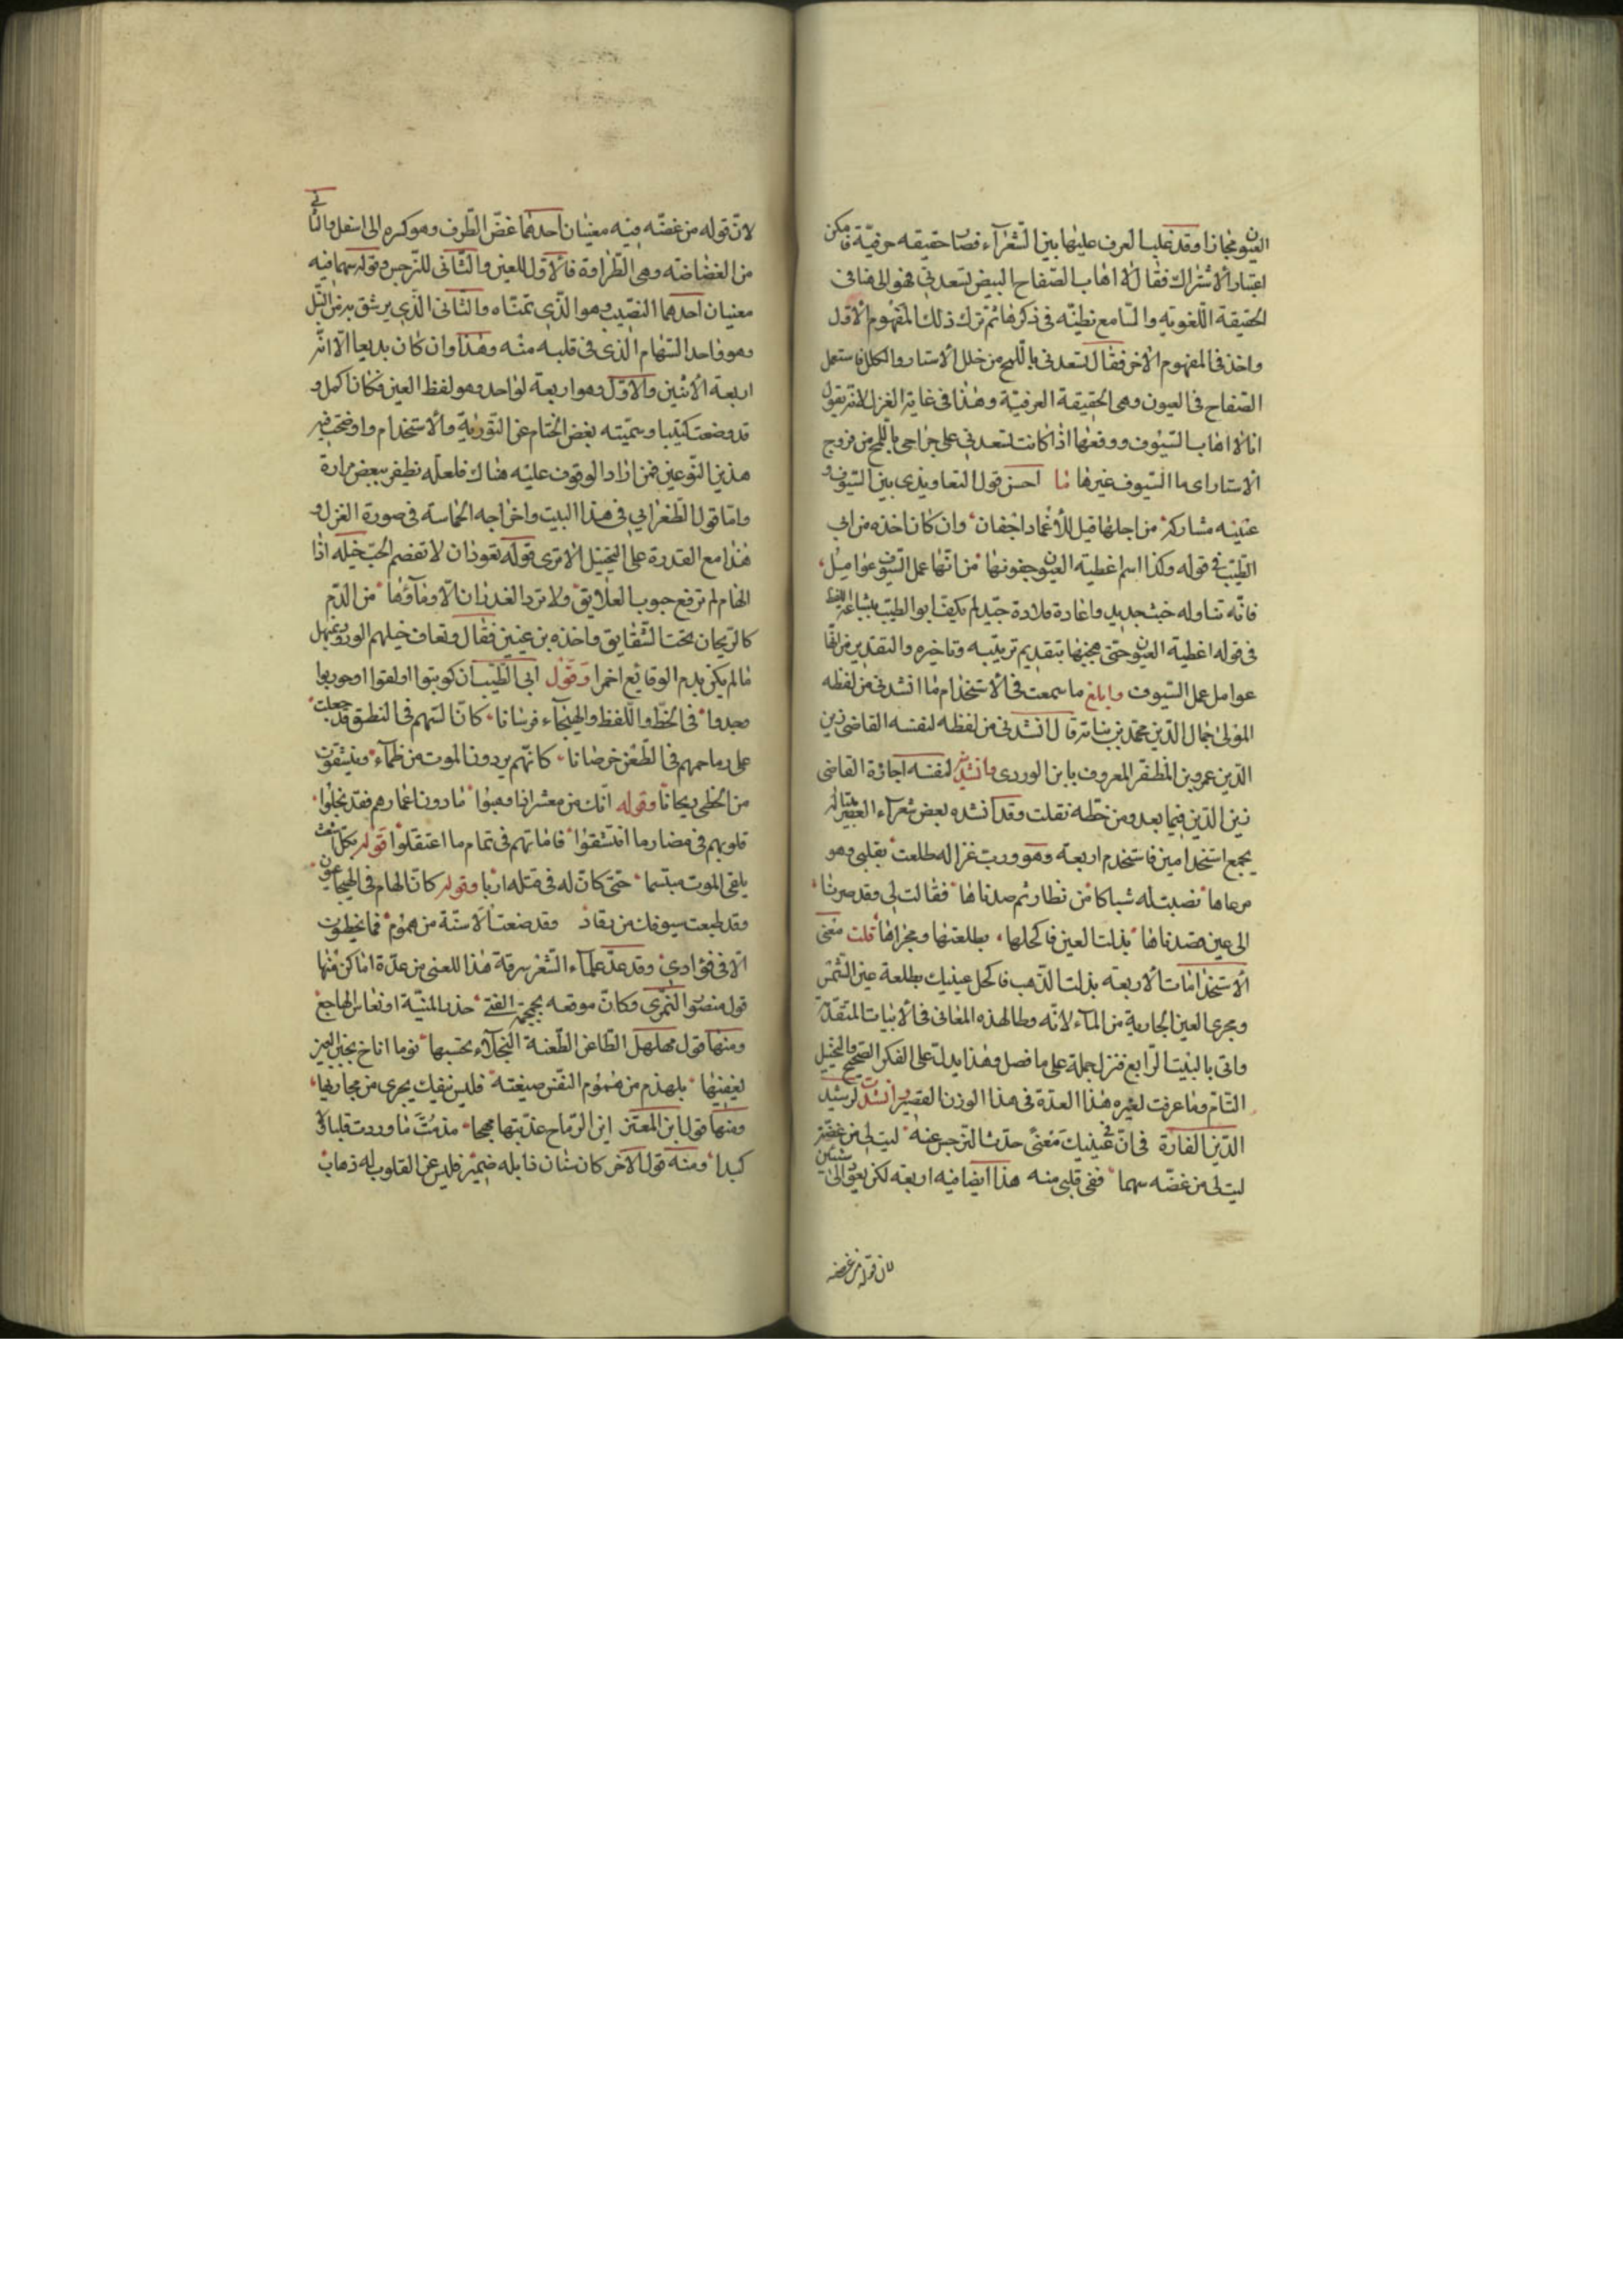 العيون مجازا وقد غلب العرف عليها بين الشعرآء فصار حقيقه عرفيّة فامكن
اعتبار الاشتراك فقال لا اهاب الصفاح البيض تسعدني فهو الى هنا في
الحقيقة اللغويّه والسّامع نظنّه في ذكرها ثم ترك ذلك المفهوم الاول
واخذ في المفهوم الاخر فقال تسعدني باللمح من خلل الاستار والكلل فاستعمل
الصفاح في العيون وهي الحقيقة العرفيّة وهذا في غاية الغزل لانه يقول
انا لا اهاب السّيوف ووقعها اذا كانت تسعدني على جراحي باللمح من فروج
الاستار اى ما السّيوف غيرها ما احسن قول التعاويذى بين السّيوف و
عينيه مشاركة من اجلها قيل للاغماد اجفان وان كان اخذه من ابي
الطيّب في قوله وكذا اسم اغطية العيون جفونها من انّها عمل السّيوف عوامل
فانّه تناوله خبث جديد واعاده قلادة جيد لم يكف ابو الطيّب بشاعة اللفظ
في قوله اغطية العيون حتى هجنها بتقديم ترتيبه وتاخيره والتقدير من انّها
عوامل عمل السّيوف وابلغ ما سمعت في الاستخدام ما انشدني من لفظه
المولى جمال الدّين محمد بن نباته قال انشدني من لفظه لنفسه القاضى زين
الدّين عمر بن المظفّر المعروف بابن الوردى وانشدنيه لنفسه اجازة القاضى
زين الدّين فيما بعد ومن خطّه نقلت وقد انشده بعض شعرآء العصر بيتا له
يجمع استخدامين فاستخدم اربعة وهو وربّ غزالة طلعت بقلبي وهو
مرعاها نصبت له شباكا من نضار ثم صدناها فقالت لي وقد صرنا
الى عين قصدناها بذلت العين فاكحلها بطلعتها ومجراها قلت معنى
الاستخدامات الاربعه بذلت الذّهب فاكحل عينيك بطلعة عين الشمس
ومجرى العين الجارية من المآء لانّه وطا لهذه المعانى في الابيات المتقدّمة
واتى بالبيت الرّابع فنزل جملة على ما فصل وهذا يدلّ على الفكر الصّحيح والتخيّل
التّام وما عرفت لغيره هذا العدّة في هذا الوزن القصير وانشدت لرشيد
الدّين الفارقى في انّ في عينيك معنى حدّث النّرجس عنه ليت لي من غصنه
ليت لي من غضّه سهما ففي قلبي منه هذا ايضا فيه اربعة لكن يعود الى شيئين
لان قوله من غضه
لانّ قوله من غضّه فيه معنيان احدهما غضّ الطّرف وهو كسره الى اسفل والثاني
من الغضاضة وهي الطّراوة فالاوّل للعين والثّانى للنّرجس وقوله سهما فيه
معنيان احدهما النّصيب وهو الذّي تمنّاه والثّانى الذّي يرشق به من النّبل
وهو واحد السّهام الذى في قلبه منه وهذا وان كان بديعا الّا انّه
اربعة لاثنين والاوّل وهو اربعة لواحد وهو لفظ العين فكان اكمل و
قد وضعت كتيبا وسميّته بفض الختام عن التّورية والاستخدام واوضحت فيه
هذين النّوعين فمن اراد الوقوف عليه هناك فلعلّه يظفر ببعض مرادة
وامّا قول الطّغرايى في هذا البيت واخراجه الحماسة في صورة الغزل و
هذا مع القدرة على التخيّل الا ترى قوله تعود ان لا تقضم الحبّ خيله اذا
الهام لم ترفع جنوب العلايق ولا ترد الغدران الّا ومآؤها من الدّم
كالرّيحان تحت الشّقايق واخذه بن عنين فقال وتعاف خيلهم الورود بمنهل
ما لم يكن بدم الوقايع احمرا وقول ابي الطّيّب ان كوتبوا او لقوا او حوربوا
وجدوا في الخطّ واللّفظ والهيجآء فرسانا كانّ السنهم في النطق قد جعلت
على رماحهم في الطّعن خرصانا كانّهم يردون الموت من ظمآء وينشقون
من الخطى ريحانا وقوله انّك من معشر اذا وهبوا ما دون اعمارهم فقد بخلوا
قلوبهم في مضاء ما امتشقوا قاماتهم في تمام ما اعتقلوا قوله بكلّ اشعث
يلقى الموت مبتسما حتى كانّ له في قتله اربا وقوله كانّ الهام في الهيجا عيون
وقد طبعت سيوفك من رقاد وقد ضعت الاسنّة من هموم فما يخطرن
الّا في فؤادى وقد عدّ علمآء الشّعر سرقة هذا المعنى من عدّة اماكن منها
قول منصور النّمرى وكانّ موقعه بجمجمة الفتى حذر المنيّة او نعاس الهاجع
ومنها قول مهلهل الطّاعن الطّعنة النّجلآء تحسبها نوما اناخ بجفن العين
يغفيها بلهذم من هموم النّفس صيغته فليس ينفك يجرى من مجاريها
ومنها قول ابن المعتز اين الرّماح غذيتها مهجا مذ متّ ما وردت قلبا ولا
كبدا ومنه قول الاخر كان سنان ذابله ضمير فليس عن القلوب له ذهاب